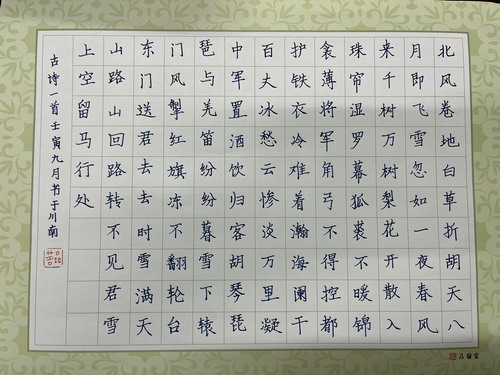 北风卷地白草折胡天八
月即飞雪忽如一夜春风
来千树万树梨花开散入
珠帘湿罗幕狐裘不暖锦
衾薄将军角弓不得控都
护铁衣冷难着瀚海阑干
百丈冰愁云惨淡万里凝
中军置酒饮归客胡琴琵
琶与羌笛纷纷暮雪下辕
门风掣红旗冻不翻轮台
东门送君去去时雪满天
山路山回路转不见君雪
上空留马行处
古诗一首壬寅九月书于川南